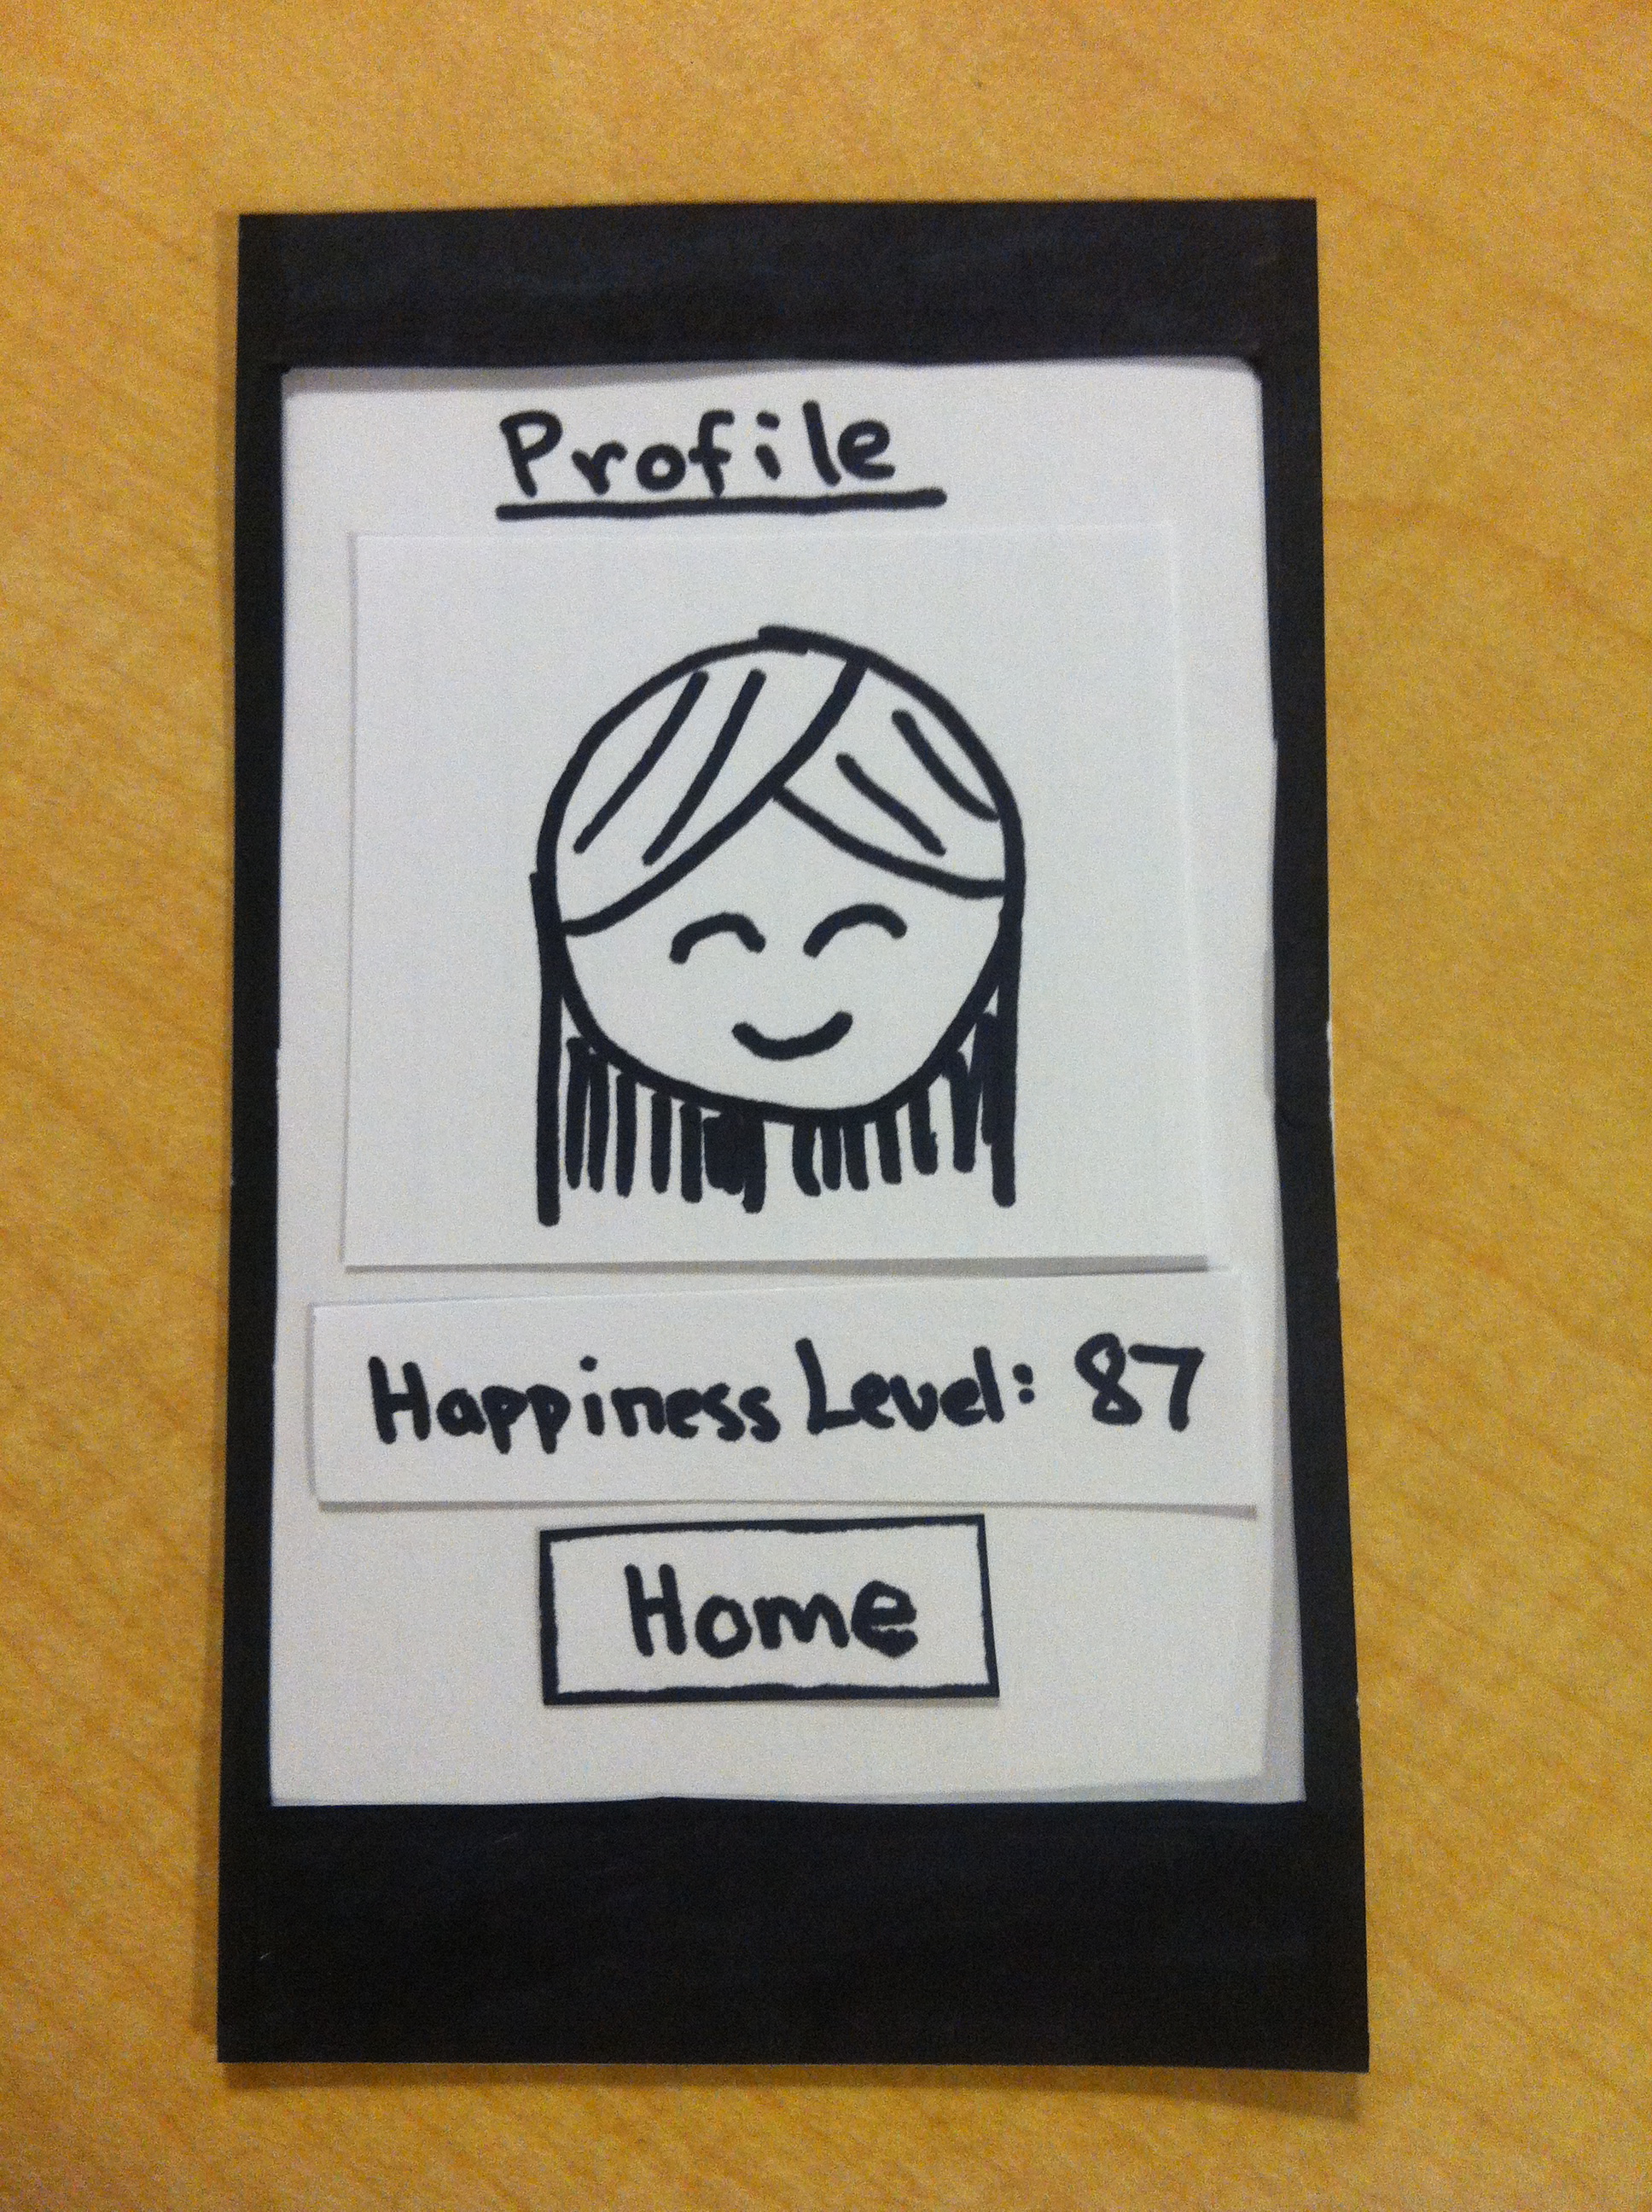 Profile
Happiness Level: 87
Home